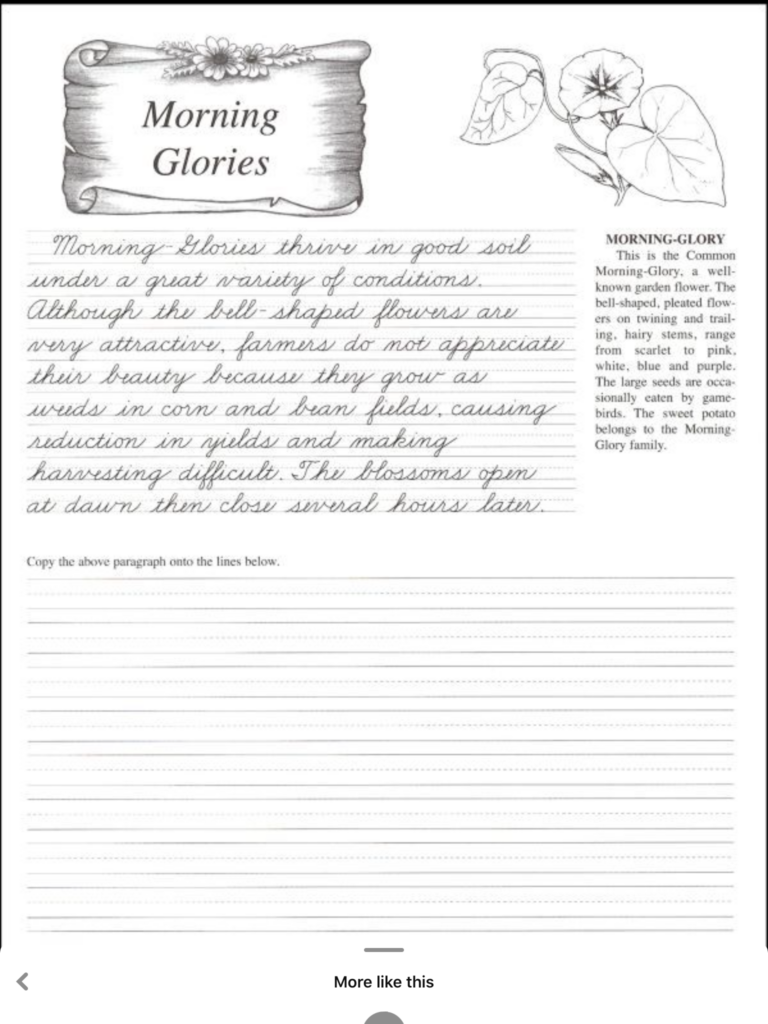 Morning
Glories
Morning-Glories thrive in good soil
under a great variety of conditions.
Although the bell-shaped flowers are
very attractive, farmers do not appreciate
their beauty because they grow as
weeds in corn and bean fields, causing
reduction in yields and making
harvesting difficult. The blossoms open
at dawn then close several hours later.
MORNING-GLORY
This is the Common
Morning-Glory, a well-
known garden flower. The
bell-shaped, pleated flow-
ers on twining and trail-
ing, hairy stems, range
from scarlet to pink,
white, blue and purple.
The large seeds are occa-
sionally eaten by game-
birds. The sweet potato
belongs to the Morning-
Glory family.
Copy the above paragraph onto the lines below.
More like this